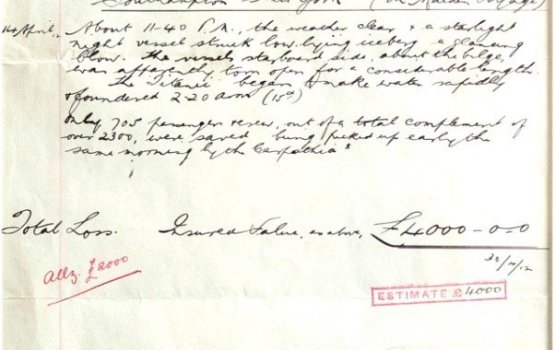 Southampton to New York (on Maiden Voyage)
14 April. About 11-40 P.M., the weather clear & a starlight
night vessel struck low lying iceberg a glancing
blow. The vessel's starboard side, about the bilge,
was apparently torn open for a considerable length.
The Titanic began to make water rapidly
& foundered 2-20 am (15th)
Only 705 passengers & crew, out of a total complement of
over 2300, were saved being picked up early the
same morning by the Carpathia"
Total Loss. Insured Value, as above, £4000-0-0
30/10/12
£4000
ESTIMATE £ 4000